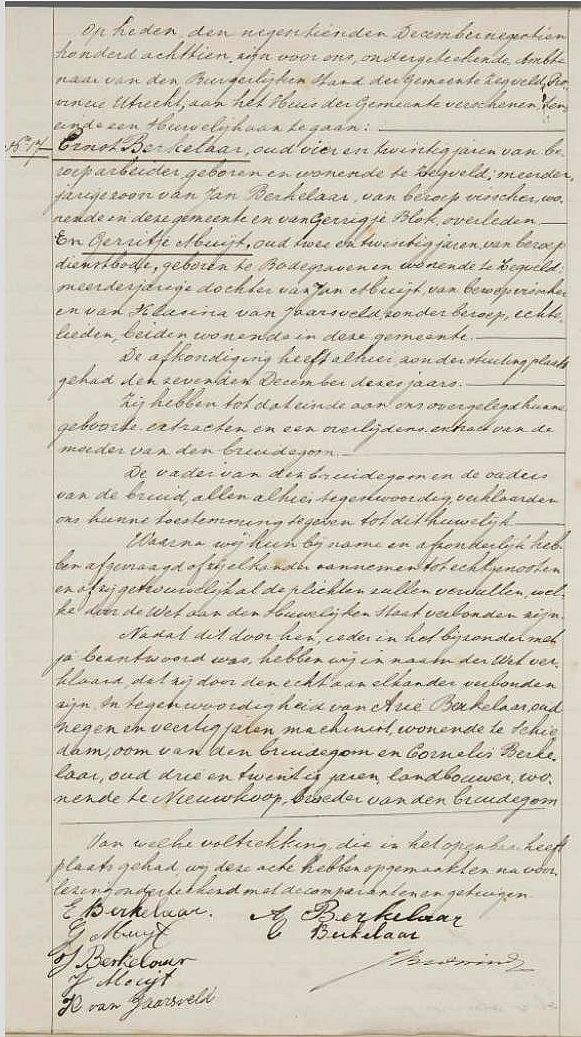 Op heden den negentienden December negentien
honderd achttien, zijn voor ons, ondergeteekende, Ambte-
naar van den Burgerlijken Stand der Gemeente Zegveld, Pro-
vincie Utrecht, aan het Huis der Gemeente verschenen, ten
einde een Huwelijk aan te gaan:
No 17
Ernst Berkelaar, oud vier en twintig jaren van be-
roep arbeider, geboren en wonende te Zegveld, meerder-
jarige zoon van Jan Berkelaar, van beroep visscher, wo-
nende in deze gemeente en van Gerrigje Blok, overleden
En Gerritje Muijt, oud twee en twintig jaren, van beroep
dienstbode, geboren te Bodegraven en wonende te Zegveld,
meerderjarige dochter van Jan Muijt, van beroep visscher
en van Klasina van Jaarsveld, zonder beroep, echte-
lieden, beiden wonende in deze gemeente.
De afkondiging heeft alhier zonder stuiting plaats
gehad den zevenden December dezes jaars.
Zij hebben tot dat einde aan ons overgelegd hunne
geboorte extracten en een overlijdens extract van de
moeder van den bruidegom.
De vader van den bruidegom en de ouders
van de bruid, allen alhier tegenwoordig, verklaarden
ons hunne toestemming te geven tot dit huwelijk
Waarna wij hun bij name en afzonderlijk heb-
ben afgevraagd of zij elkander aannemen tot echtgenooten
en of zij getrouwelijk al de plichten zullen vervullen, wel-
ke door de Wet aan den Huwelijken Staat verbonden zijn.
Nadat dit door hen, ieder in het bijzonder met
ja beantwoord was, hebben wij in naam der Wet ver-
klaard, dat zij door den echt aan elkander verbonden
zijn, in tegenwoordigheid van Arie Berkelaar, oud
negen en veertig jaren machinist, wonende te Schie-
dam, oom van den bruidegom en Cornelis Berke-
laar, oud drie en twintig jaren, landbouwer, wo-
nende te Nieuwkoop, broeder van den bruidegom
Van welke voltrekking, die in het openbaar heeft
plaats gehad, wij deze acte hebben opgemaakt en na voor-
lezing onderteekend met de comparanten en getuigen.
E Berkelaar. A Berkelaar
G Muijt C Berkelaar
J Berkelaar
J Muijt
K van Jaarsveld